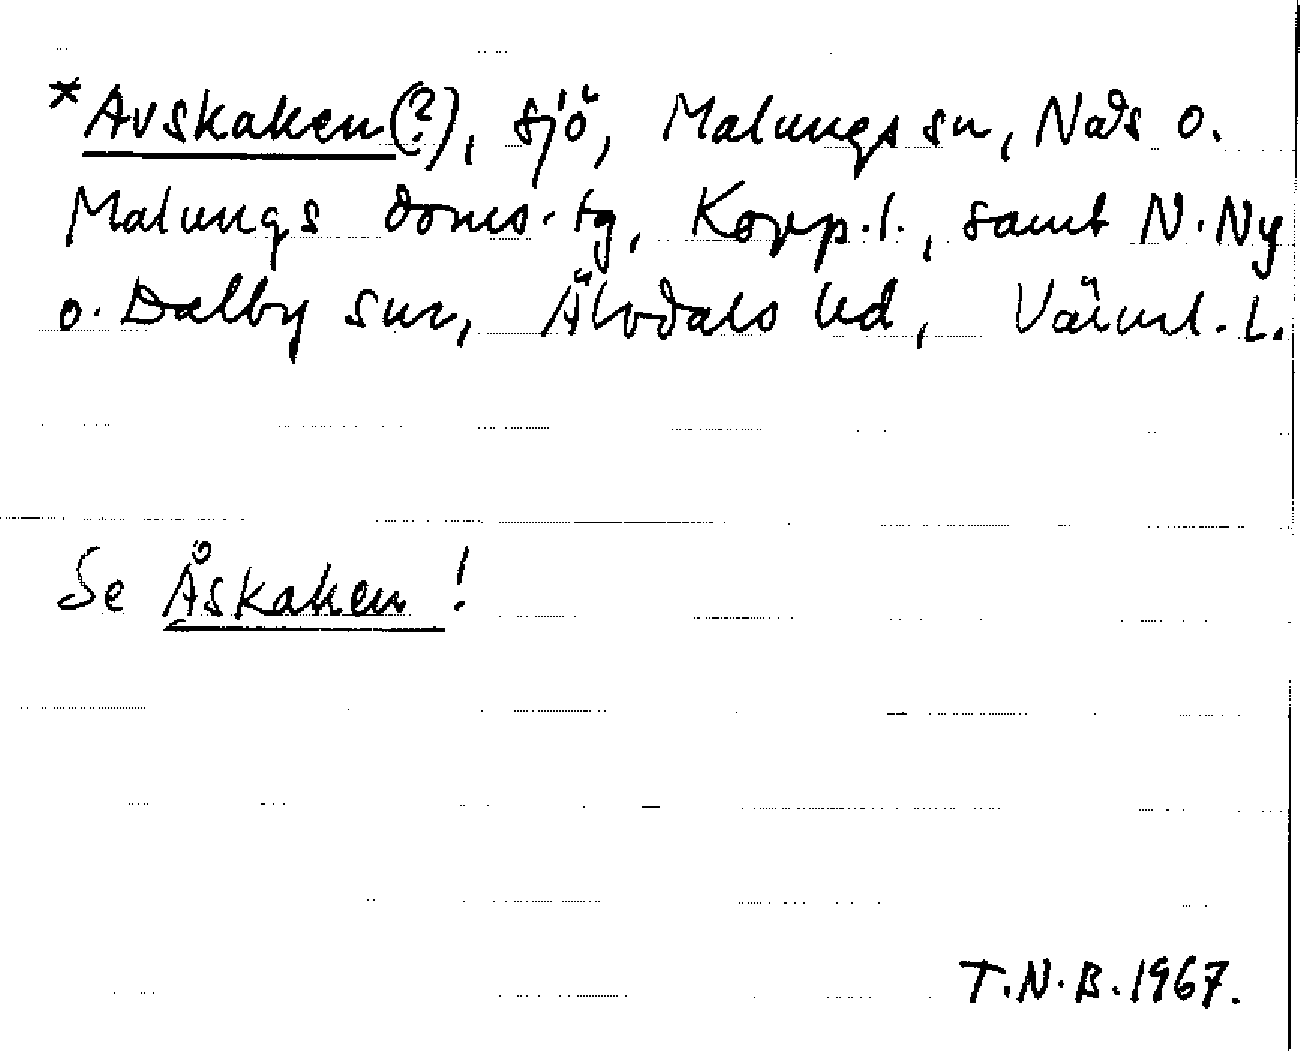 *Avskaken(?), sjö, Malungs sn, Nås o.
Malungs doms.tg, Kopp.l., samt N.Ny
o. Dalby snr, Älvdals hd, Värml.l.
Se Åskaken!
T.N.B.1967.